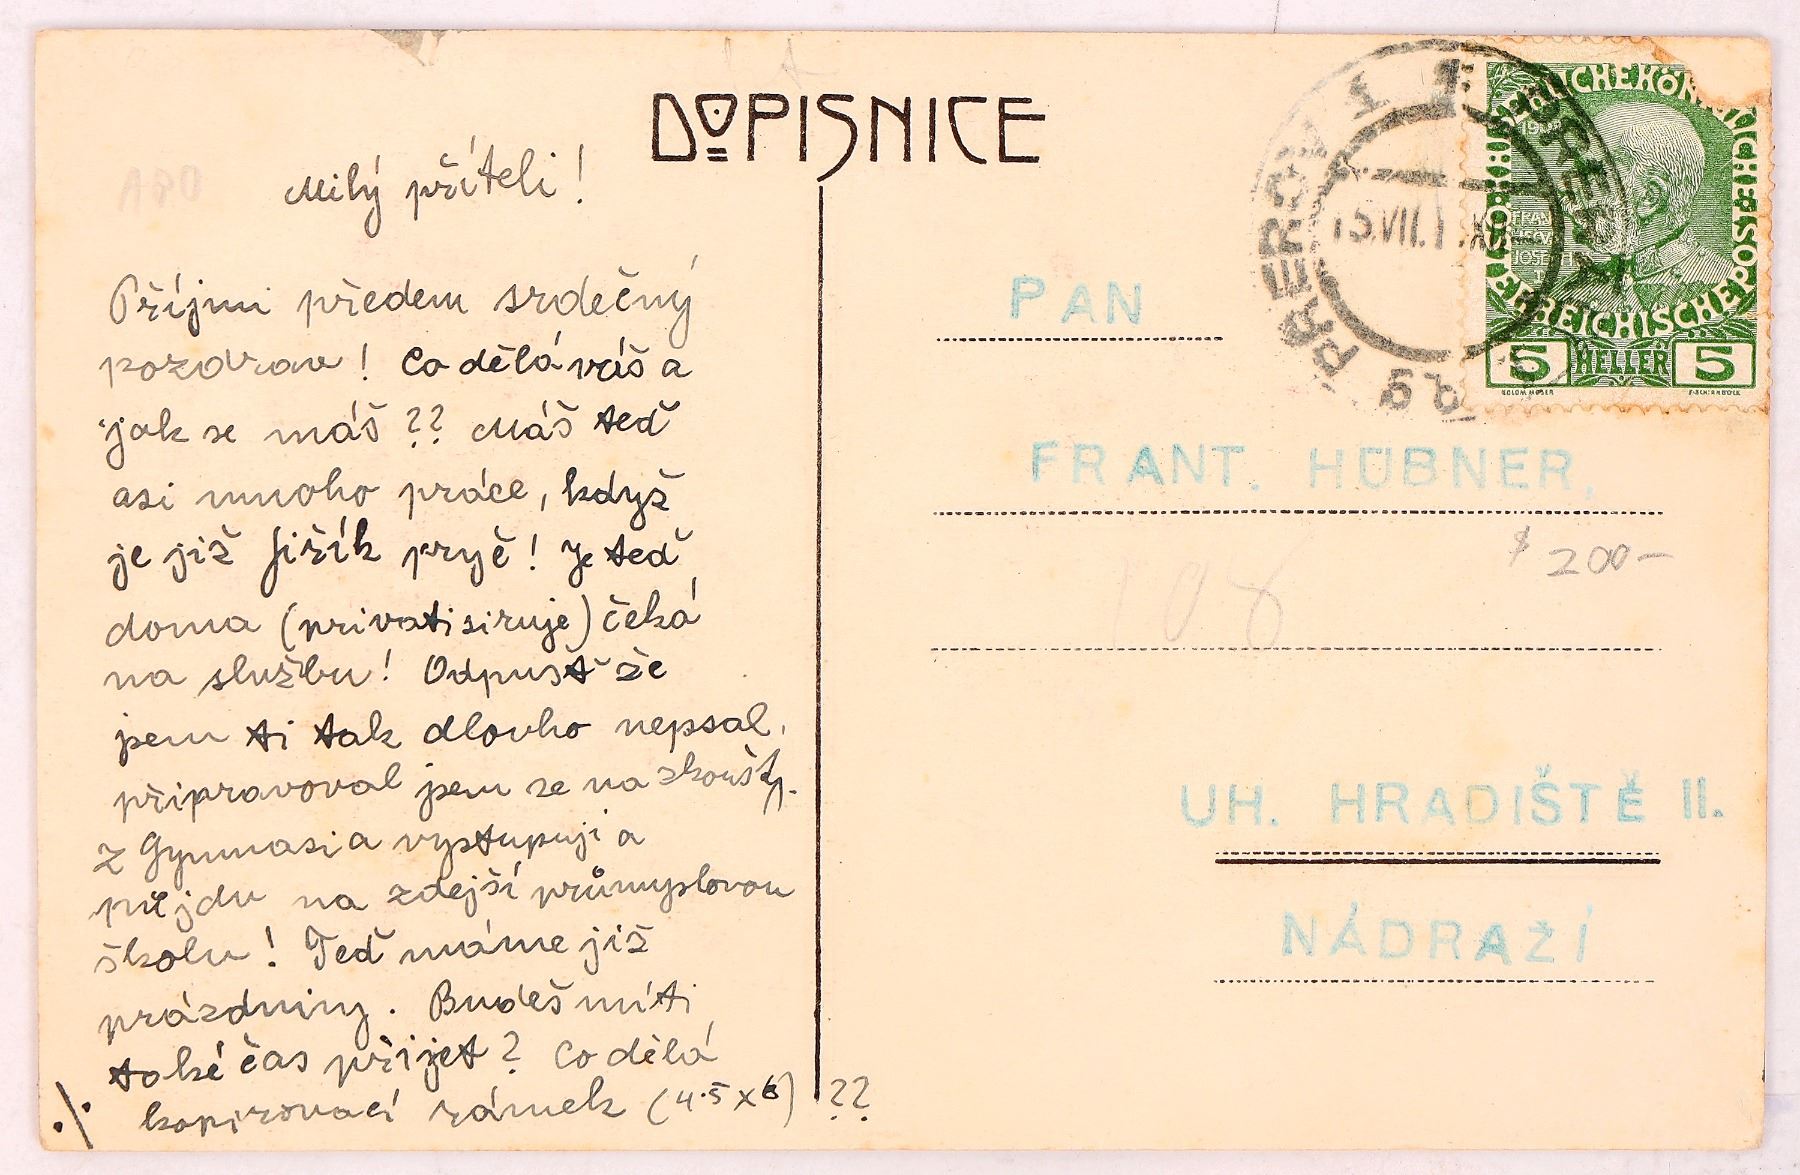 DOPISNICE
Milý příteli!
Příjmi předem srdečný
pozdrav! Co dělá váš a
jak se máš?? Máš teď
asi mnoho práce, když
je již Jiřík pryč! Je teď
doma (privatisiruje) čeká
na službu! Odpusť že
jsem ti tak dlouho nepsal,
připravoval jsem se na zkoušky.
Z Gymnasia vystupuji a
přejdu na zdejší průmyslovou
školu! Teď máme již
prázdniny. Budeš míti
také čas přijet? Co dělá
kopirovací rámek (4.5 x 6) ??
./.
PŘEROV 1
PRERAU 1
15.VII.1
9a
ÖSTERREICHISCHE POST
FRANZ
JOSEPH
I
5 HELLER 5
PAN
FRANT. HÜBNER,
$ 200-
108
UH. HRADIŠTĚ II.
NÁDRAŽÍ